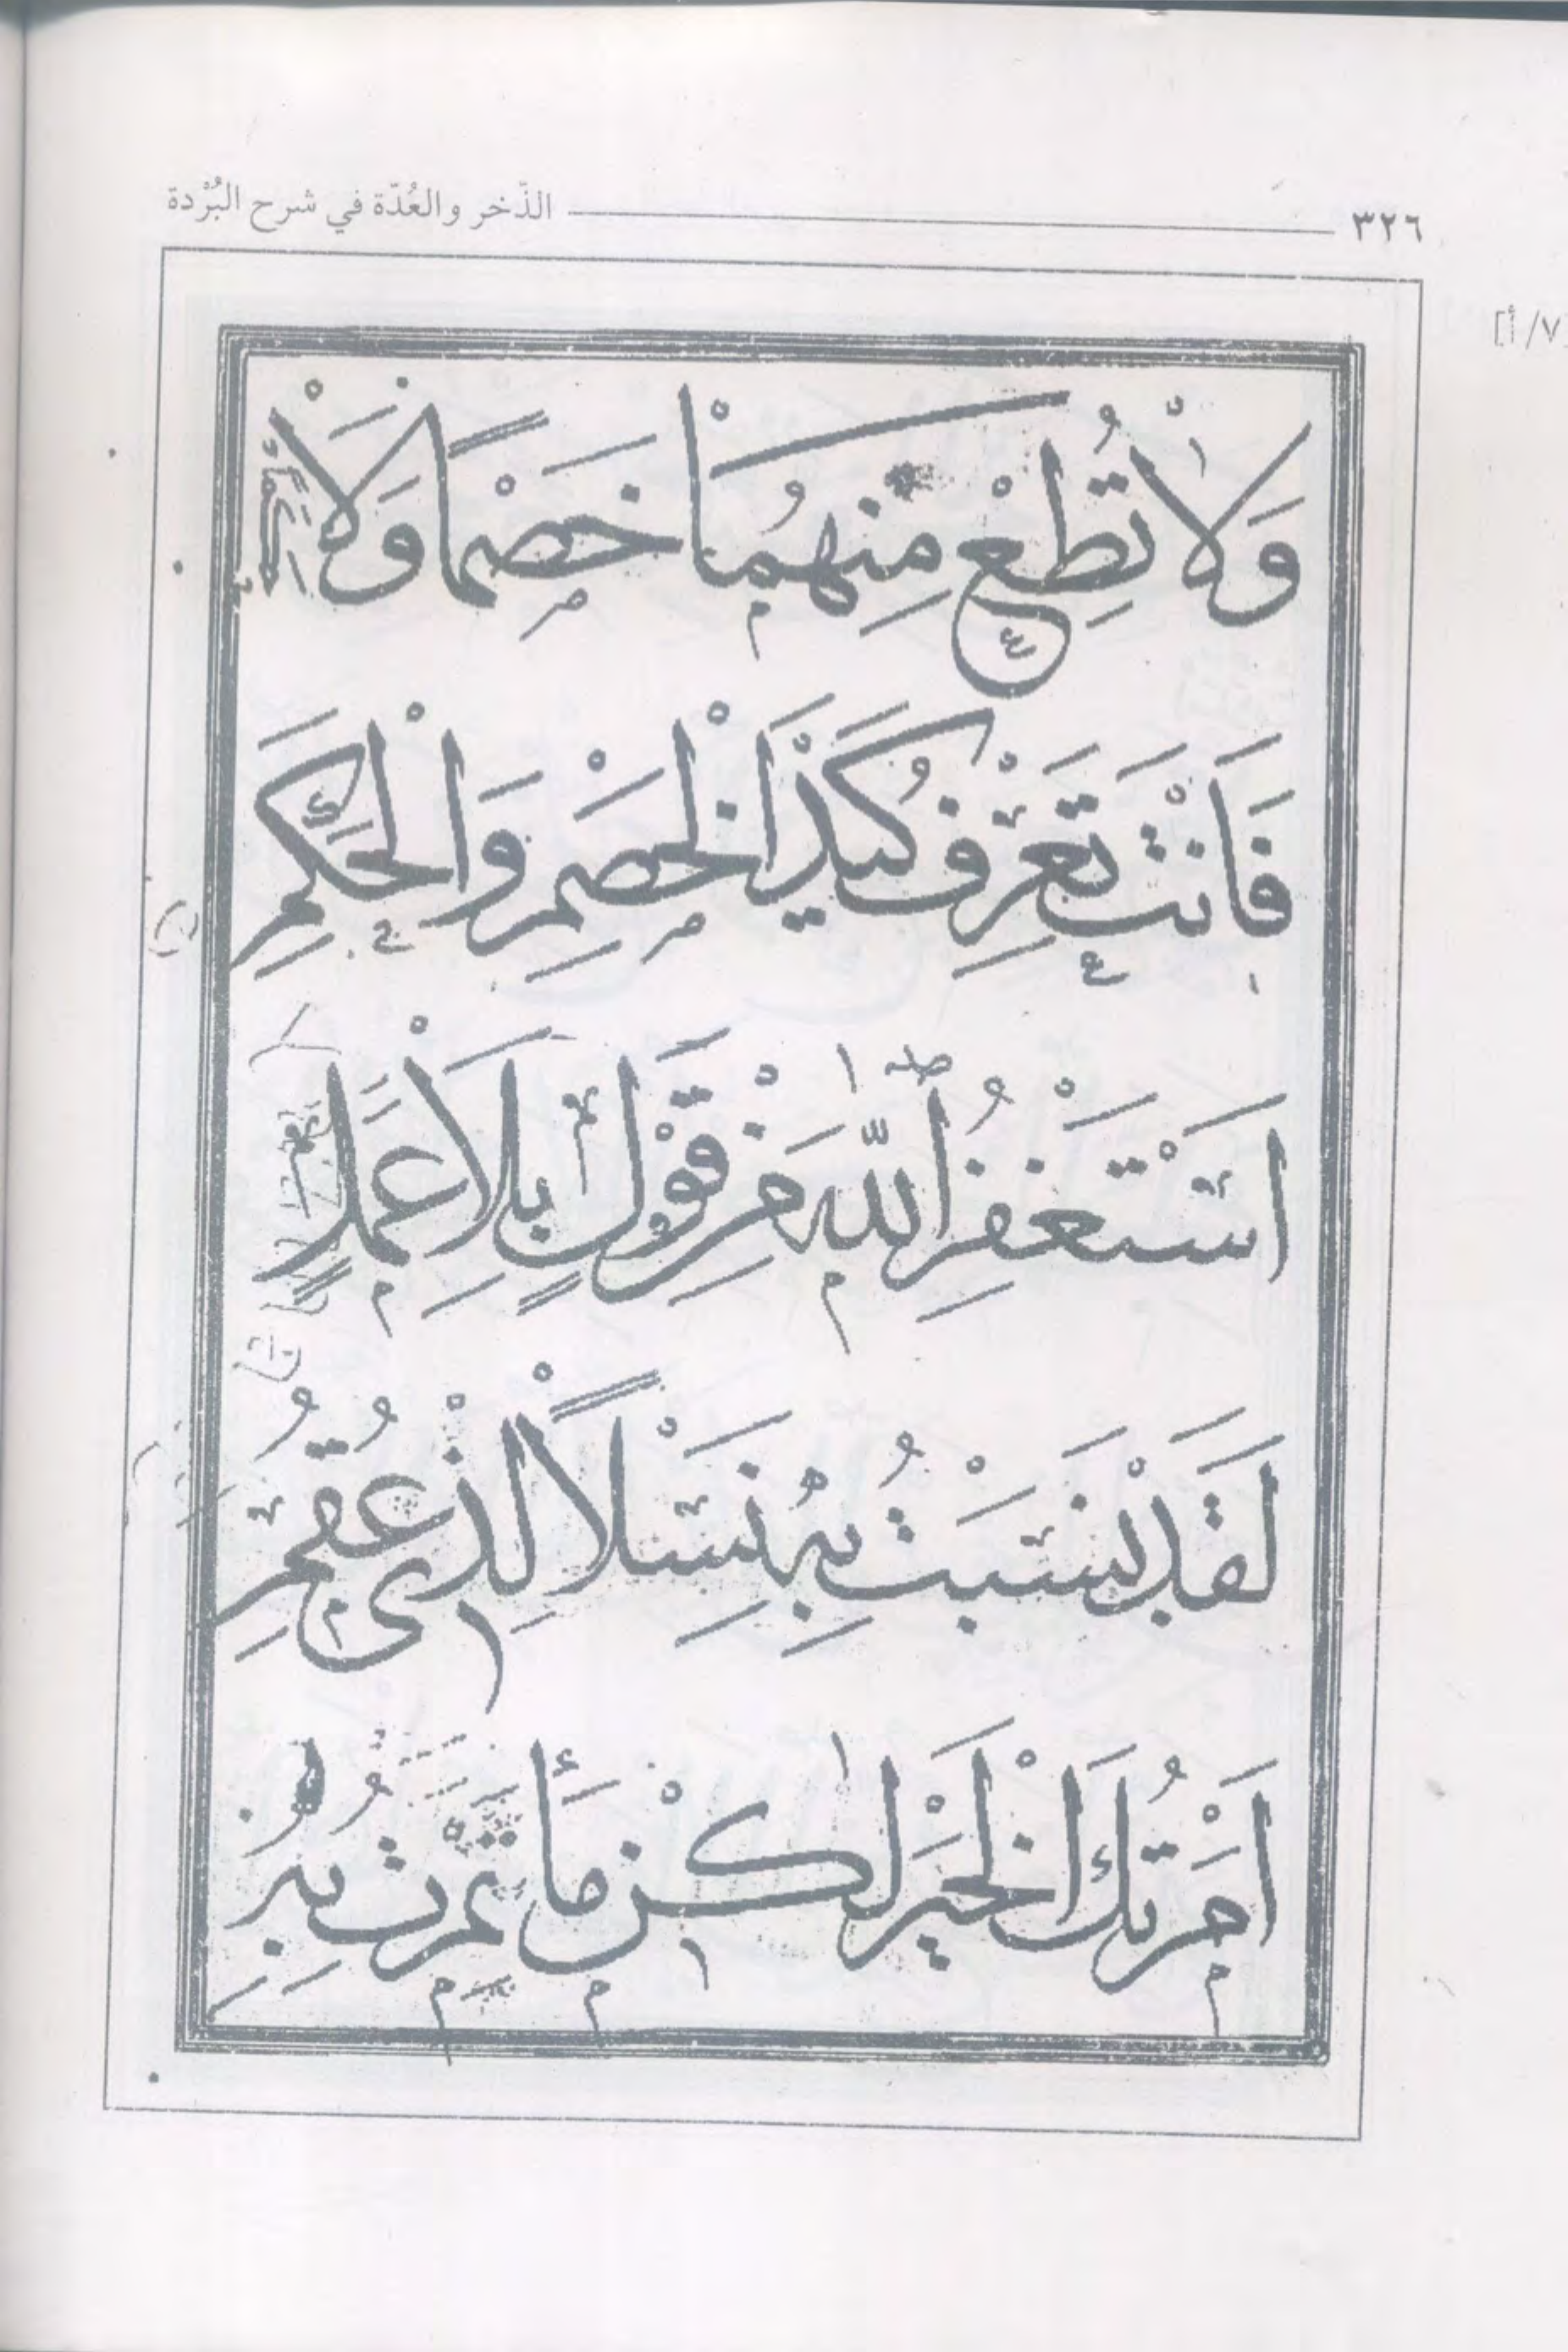 ٣٢٦ الذّخر والعُدّة في شرح البُرْدة
[٧/أ]
وَلَا تُطِعْ مِنْهُمَا خَصْمًا وَلَا حَكَمًا
فَاَنْتَ تَعْرِفُ كَيْدَ الْخَصْمِ وَالْحَكَمِ
اَسْتَغْفِرُ اللّٰهَ مِنْ قَوْلٍ بِلَا عَمَلٍ
لَقَدْ نَسَبْتُ بِهِ نَسْلًا لِذِى عُقُمِ
اَمَرْتُكَ الْخَيْرَ لٰكِنْ مَا أْتَمَرْتُ بِهِ